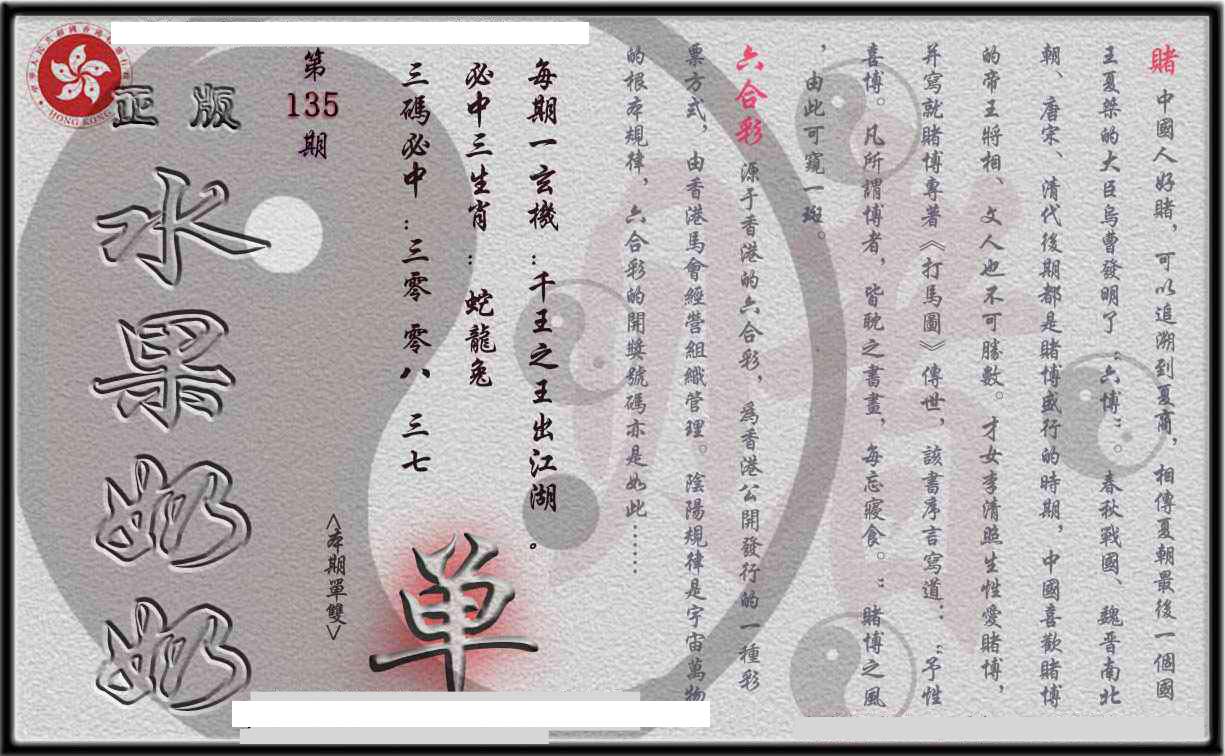 賭 中國人好賭，可以追溯到夏商，相傳夏朝最後一個國
王夏桀的大臣烏曹發明了“六博”。春秋戰國、魏晋南北
朝、唐宋、清代後期都是賭博盛行的時期，中國喜歡賭博
的帝王將相、文人也不可勝數。才女李清照生性愛賭博，
并寫就賭博專著《打馬圖》傳世，該書序言寫道：“予性
喜博。凡所謂博者，皆耽之書畫，每忘寢食。”賭博之風
，由此可窺一斑。
六合彩 源于香港的六合彩，爲香港公開發行的一種彩
票方式，由香港馬會經營組織管理。陰陽規律是宇宙萬物
的根本規律，六合彩的開獎號碼亦是如此……
每期一玄機：千王之王出江湖。
必中三生肖：蛇龍兔
三碼必中：三零 零八 三七
單
第
135
期
<本期單雙>
正版
水果奶奶
HONG KONG